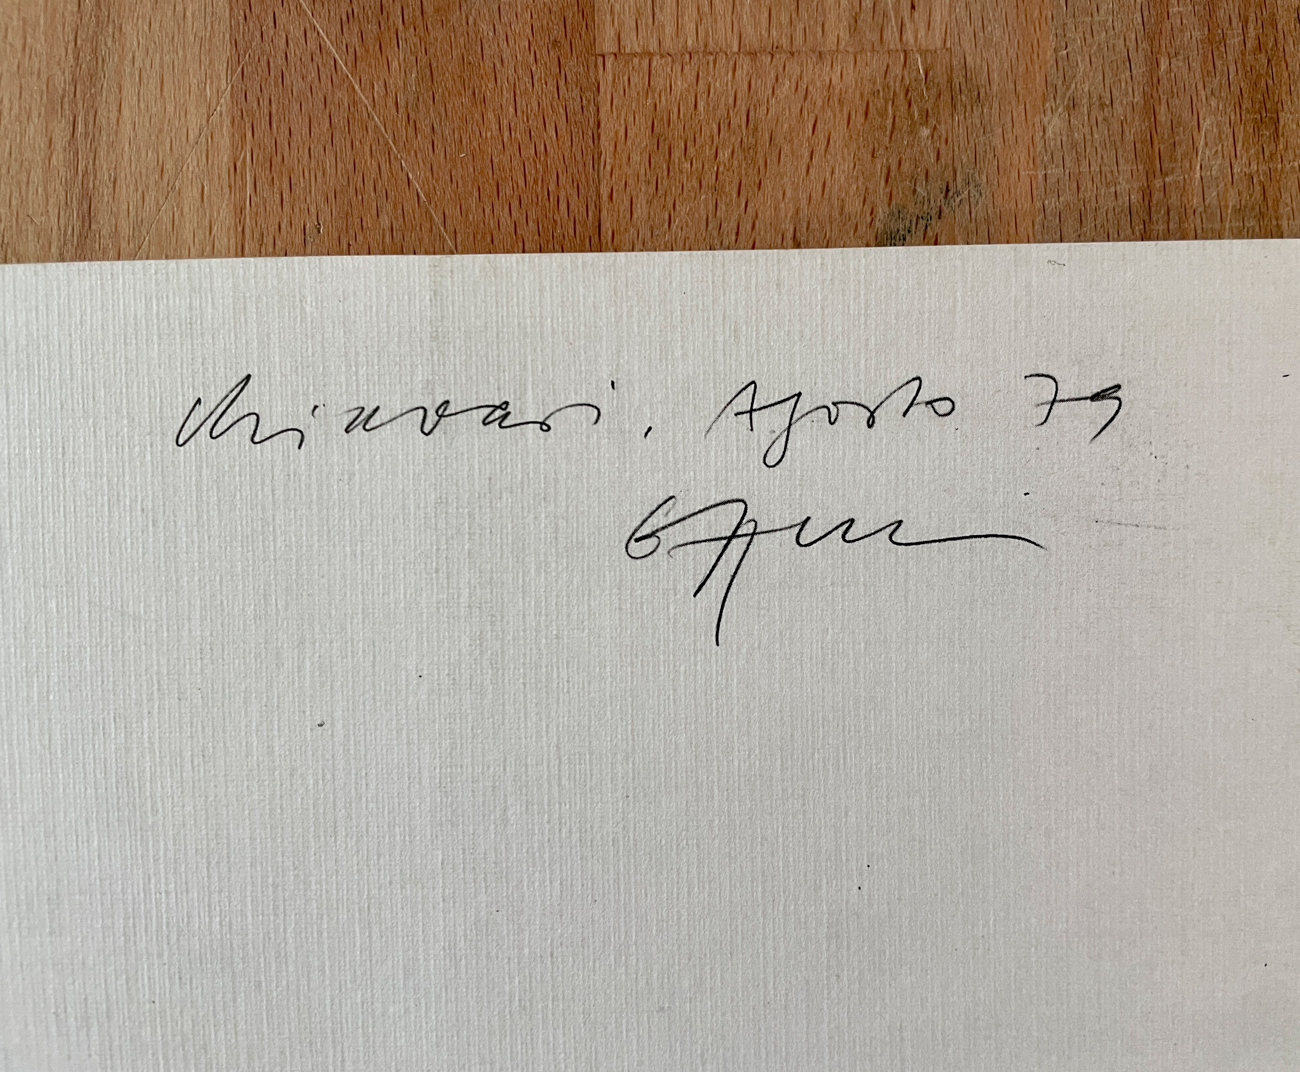 Chiavari, Agosto 79